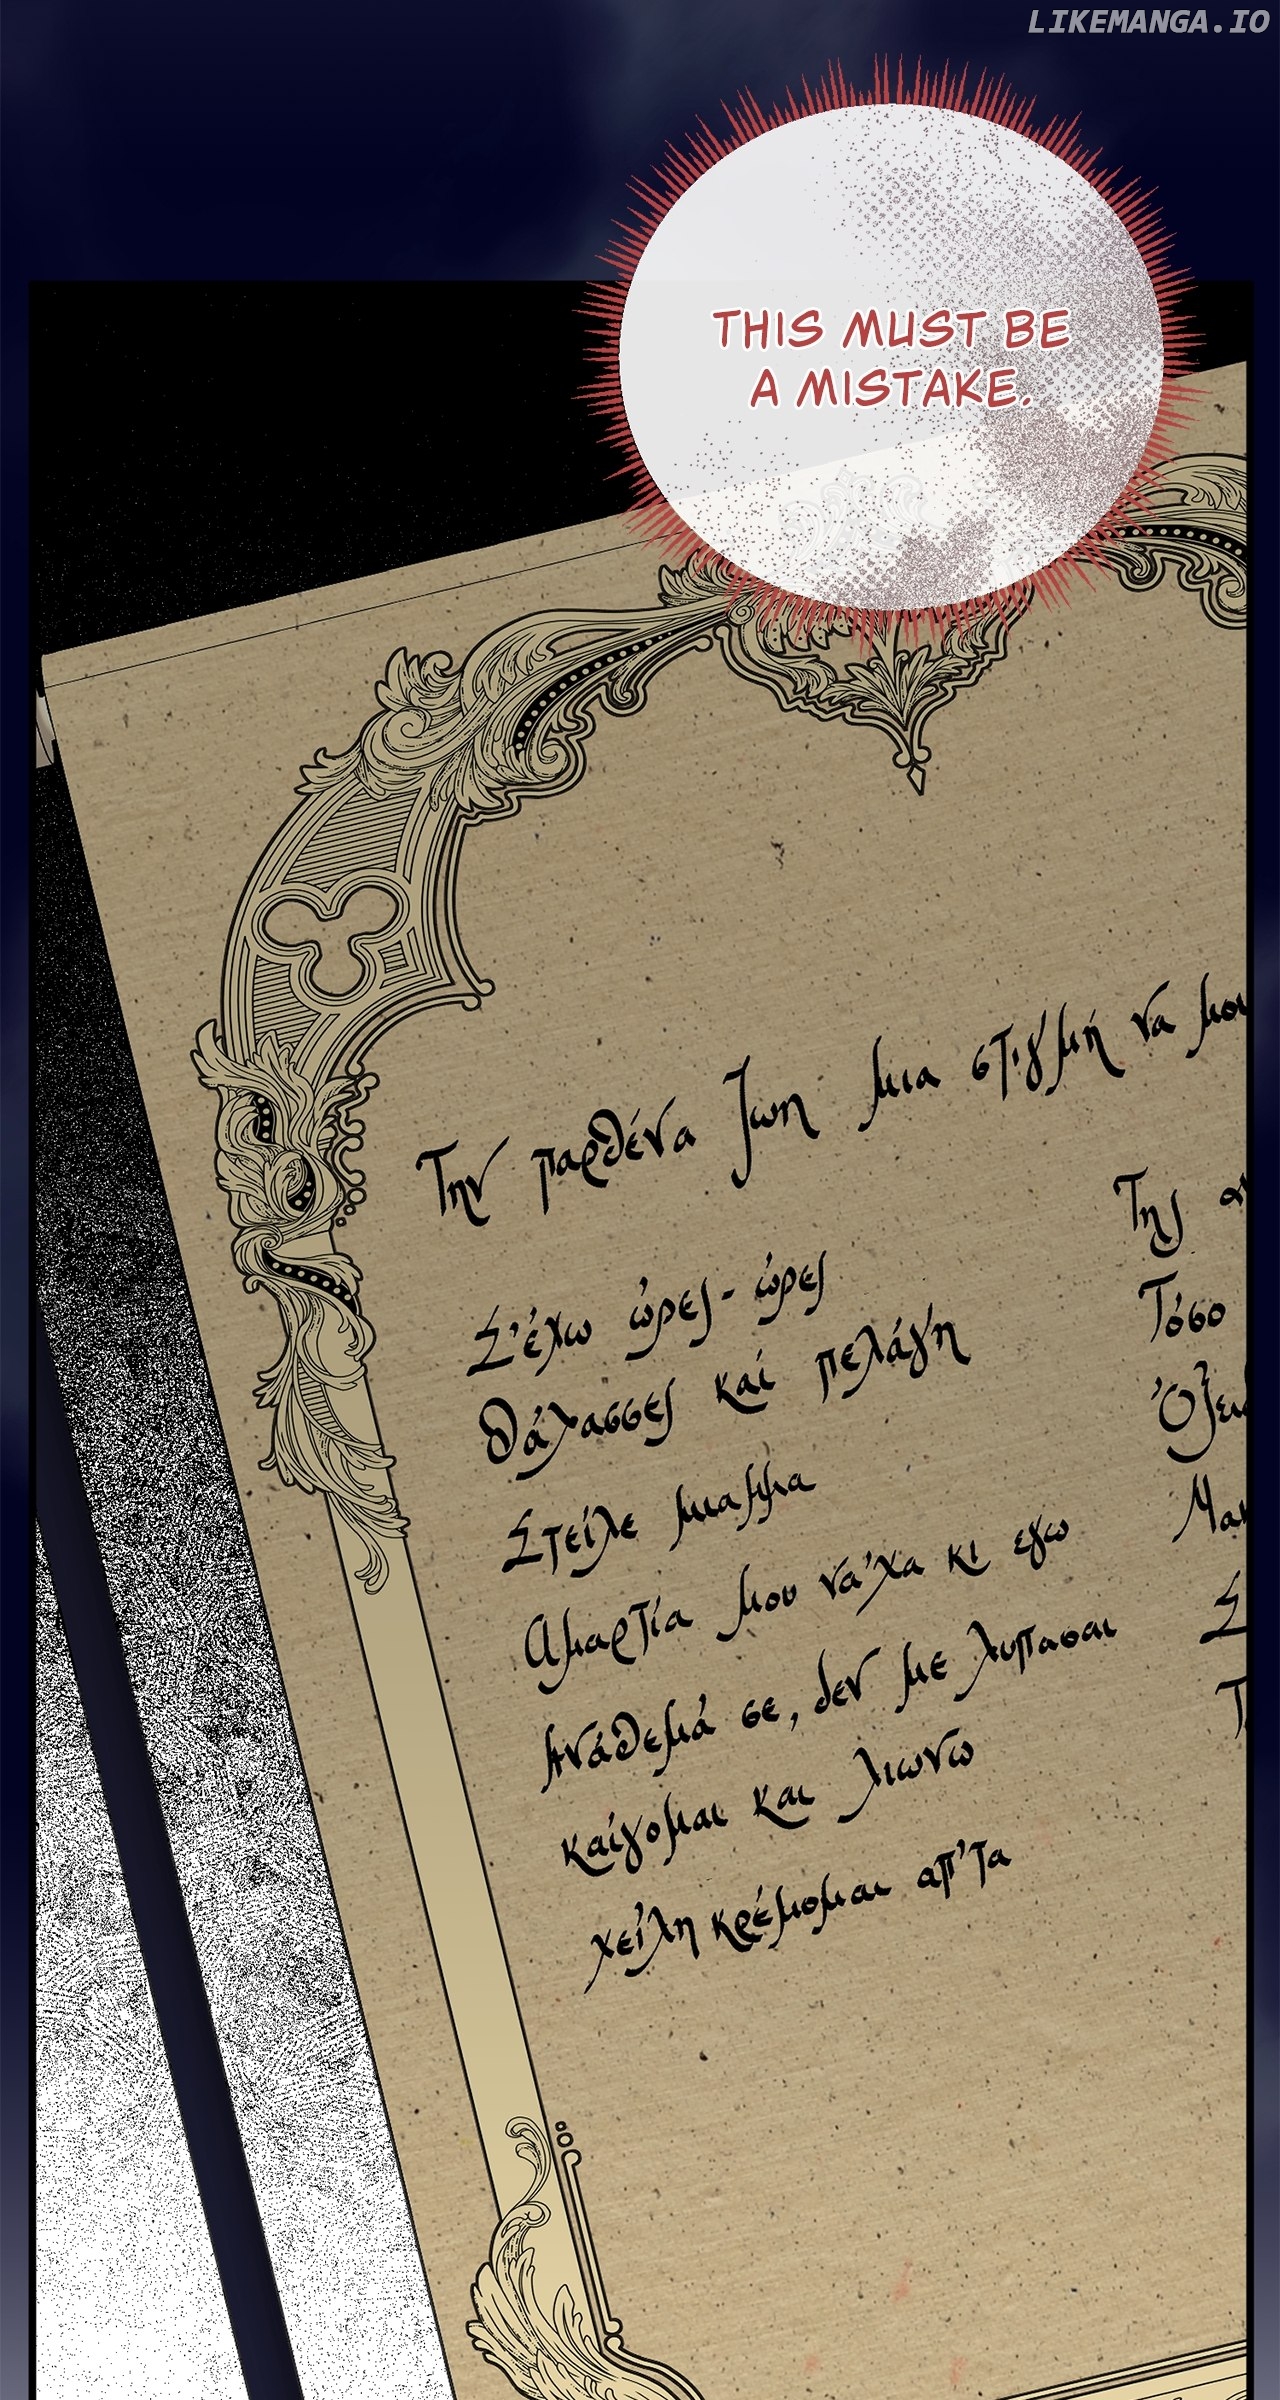 LIKEMANGA.IO
THIS MUST BE
A MISTAKE.
Την παρθένα ζωη μια στιγμή να μου
Σ'έχω ώρες-ώρες
θάλασσες καί πελάγη
Στείλε
Αμαρτία μου νά'χα κι εγω
Ανάθεμά σε, δεν με λυπασαι
καίγομαι και λιωνω
χείλη κρέμομαι απ'τα
Της
Τόσο